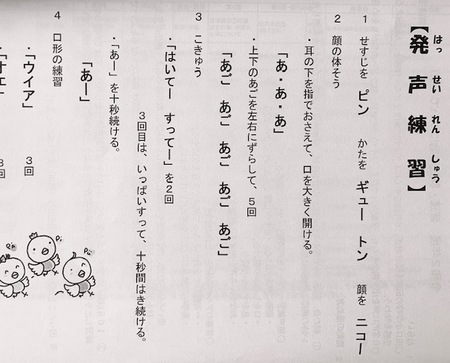 【発声練習】
はっ せい れん しゅう
1 せすじを ピン かたを ギュー トン 顔を ニコー
2 顔の体そう
・耳の下を指でおさえて、口を大きく開ける。
「あ・あ・あ」
・上下のあごを左右にずらして、5回
「あご あご あご あご あご」
3 こきゅう
・「はいてー すってー」を2回
3回目は、いっぱいすって、十秒間はき続ける。
・「あー」を十秒続ける。
「あー」
4 口形の練習
・「ウイア」 3回
・「オエ」